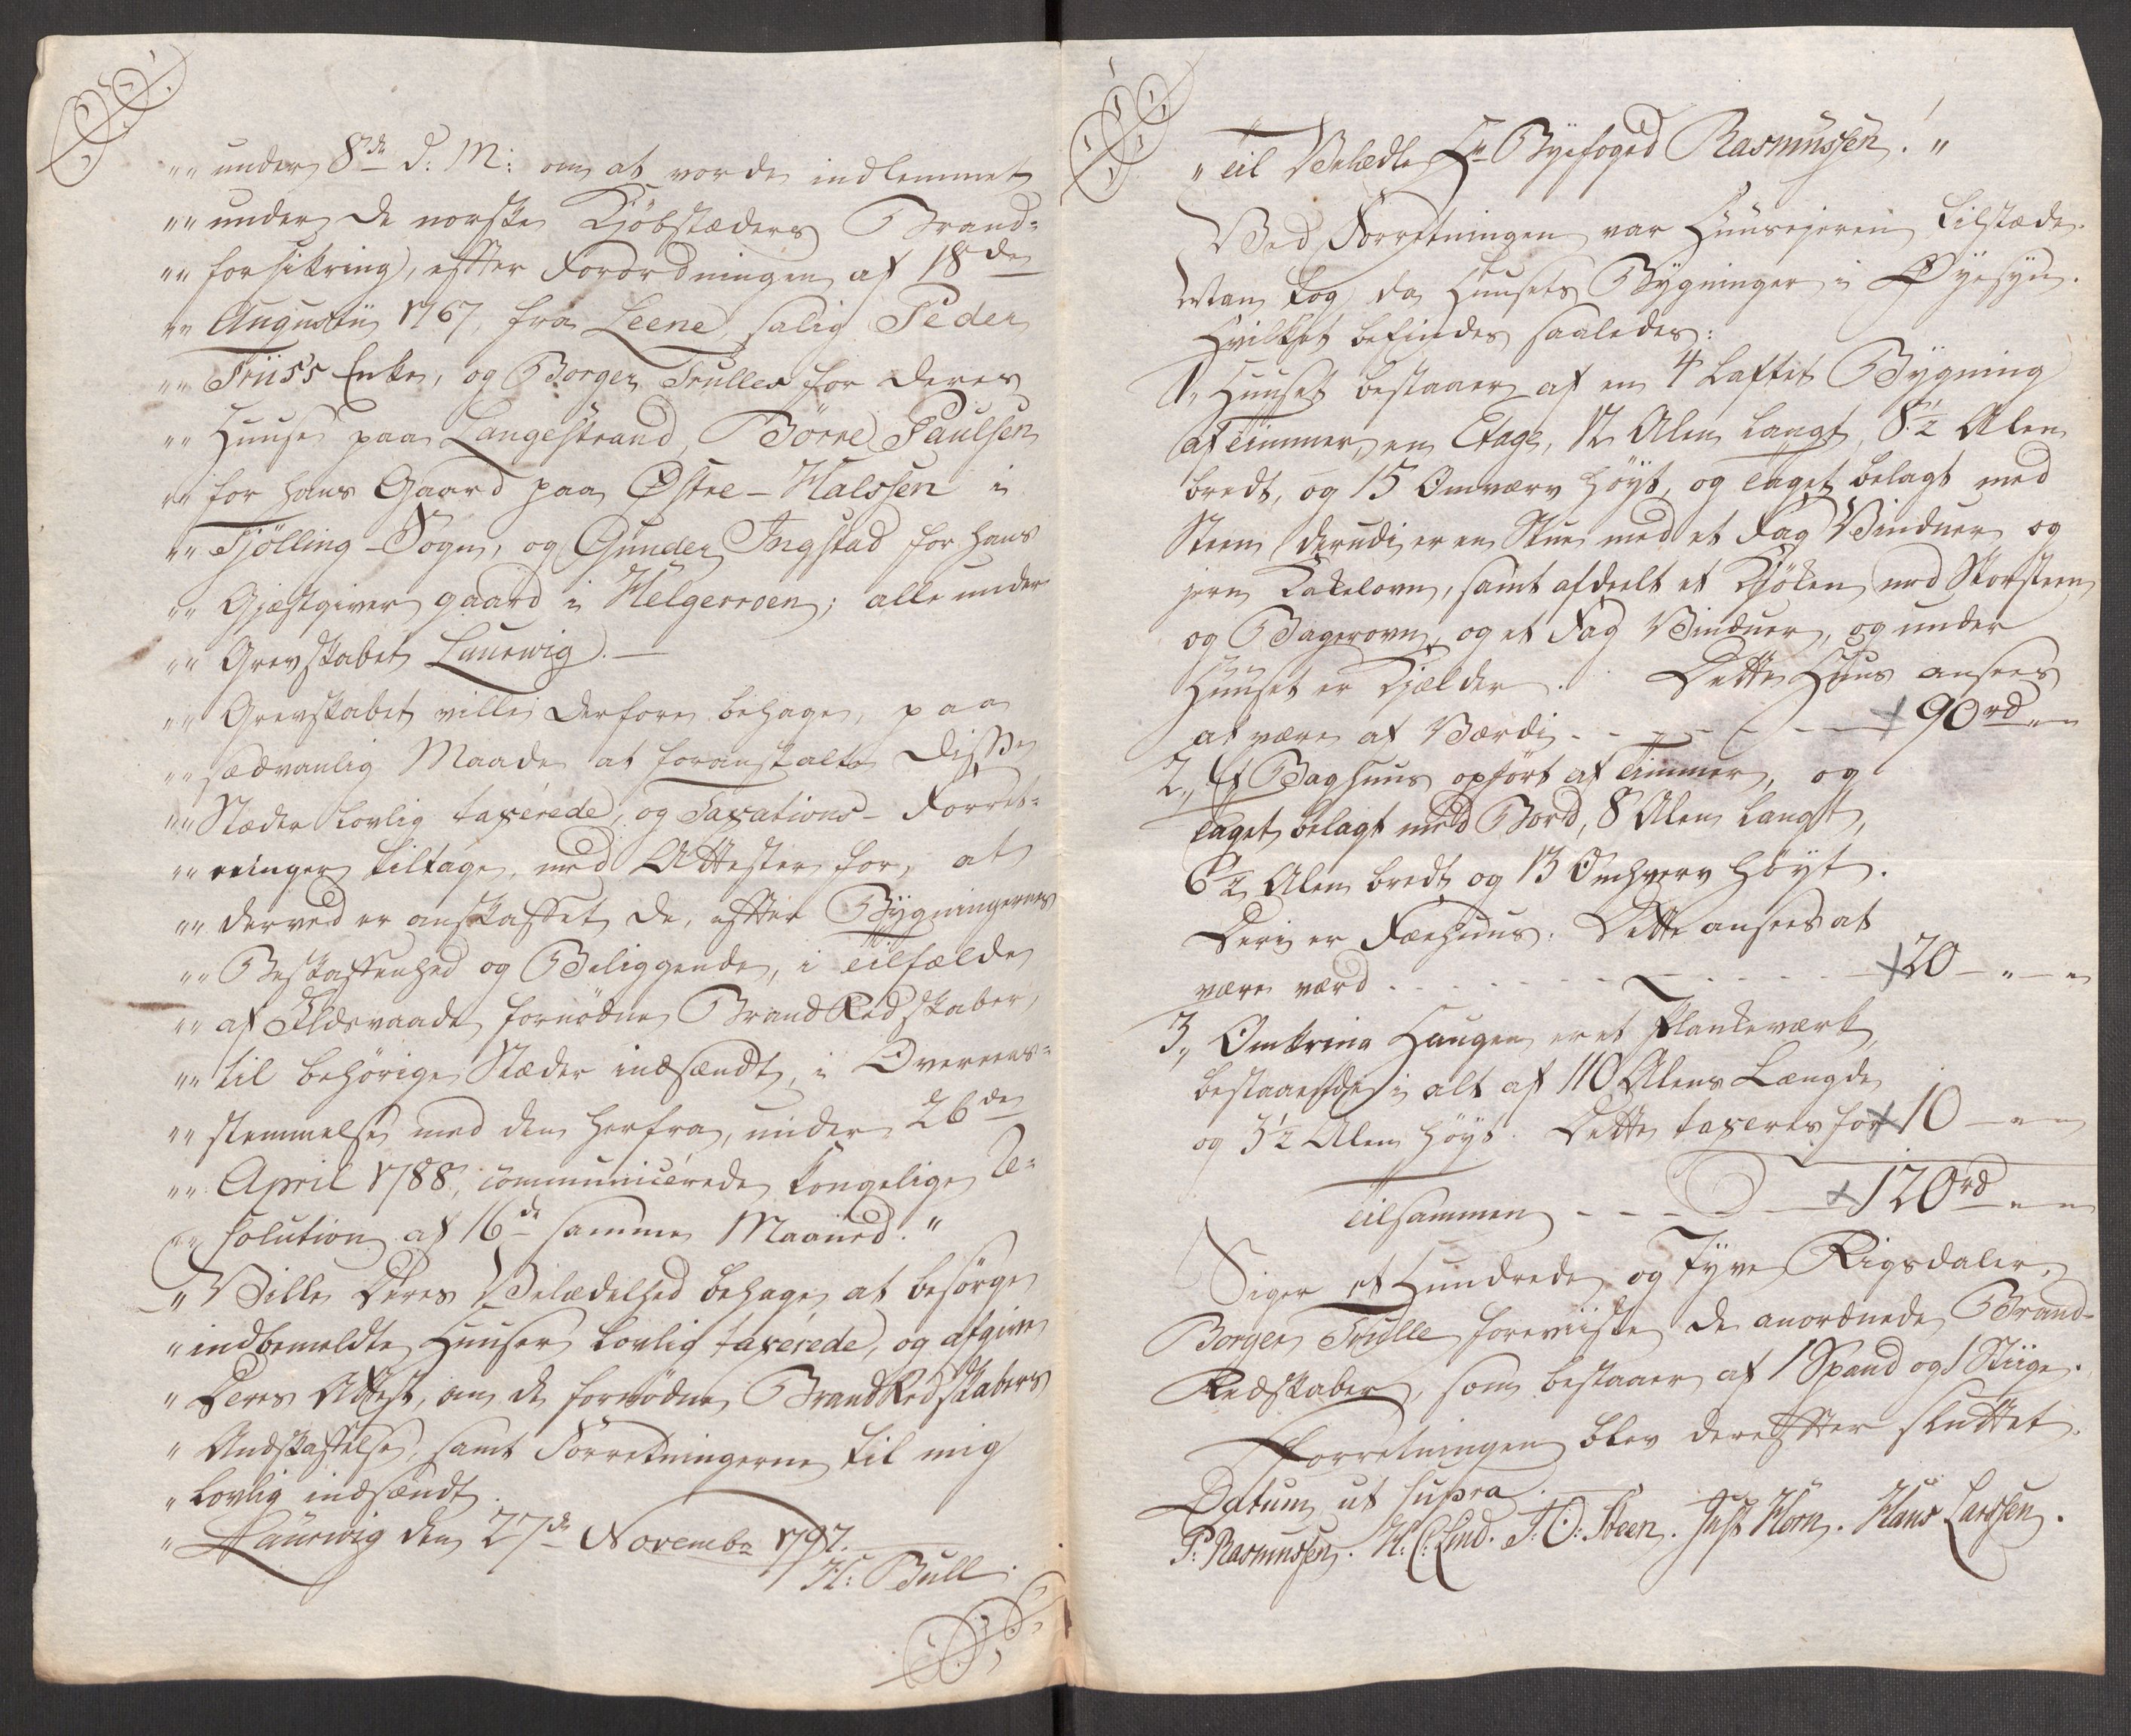 "" under 8de d: M: om at vorde indlemmet
"" under de norske Kjöbstæders Brand-
"" forsikring, efter Forordningen af 18de
"" Augustii 1767, fra Leene, salig Peder
"" Friiss Enke, og Borger Trulles for deres
"" Huuse paa Langestrand, Börre Paulsen
"" for hans Gaard paa Østre-Halssen i
"" Tjölling-Sogn, og Gunder Ingstad for hans
"" Gjæstgiver gaard i Helgeroen; alle under
"" Grevskabet Laurwig. —
"" Grevskabet ville derfore behage, paa
"" sædvanlig Maade at foranstalte disse
"" Stæder lovlig taxérede, og Taxations-Forret-
"" ninger tiltage, med Attester for, at
"" derved er anskaffet de, efter Bygningernes
"" Beskaffenhed og Beliggende, i Tilfælde
"" af Ildsvaade fornödne BrandRedskaber,
"" til behörige Stæder indsændt, i Overeens-
"" stemmelse med den herfra, under 26de
"" April 1788, communicérede Kongelige Re-
"" solution af 16de samme Maaned."
" Ville Deres Velædelhed behage at besörge
" indbemeldte Huuser lovlig taxérede, og afgive
" Deres Attest, om de fornödne BrandRedskabers
" Andskaffelse, samt Forretningerne til mig
" lovlig indsændt.
" Laurwig den 27de Novembr 1797.
H: Bull.
" Til Velædle Hr Byefoged Rasmussen! "
Ved Forretningen var Huusejeren tilstæde.
Man tog da Huusets Bygninger i Øyesyn.
Hvilket befindes saaledes:
1, Huuset bestaaer af en 4 Laftet Bygning
af Timmer, en Etage, 12 Alen langt, 8½ Alen
bredt, og 15 Omværv höyt, og Taget belagt med
Steen, derudi er en Stue med et Fag Vinduer og
jern Kakelovn, samt afdeelt et Kjöken med Skorsteen
og Bagerovn, og et Fag Vinduer, og under
Huuset er Kjelder. Dette Huus ansees
at være af Værdi - - - - - 90 rd " "
2, Et Baghuus opfört af Timmer, og
Taget belagt med Bord, 8 Alen langt,
6½ Alen bredt og 13 Omhverv höyt.
Deri er Fæehuus. Dette ansees at
være værd - - - - - 20 - " - "
3, Omkring Haugen er et Plankeværk,
bestaaende i alt af 110 Alens Længde
og 3½ Alen höyt. Dette taxeres for 10 - " "
Tilsammen - - - - 120 rd " "
Siger et Hundrede og Tyve Rigsdaler.
Borger Trulle foreviiste de anordnede Brand-
Redskaber, som bestaaer af 1 Spand og 1 Stiige.
Forretningen blev derefter sluttet.
Datum ut supra.
P: Rasmussen. H: C: Lind. J: O: Steen. Just Horn. Hans Larssen.